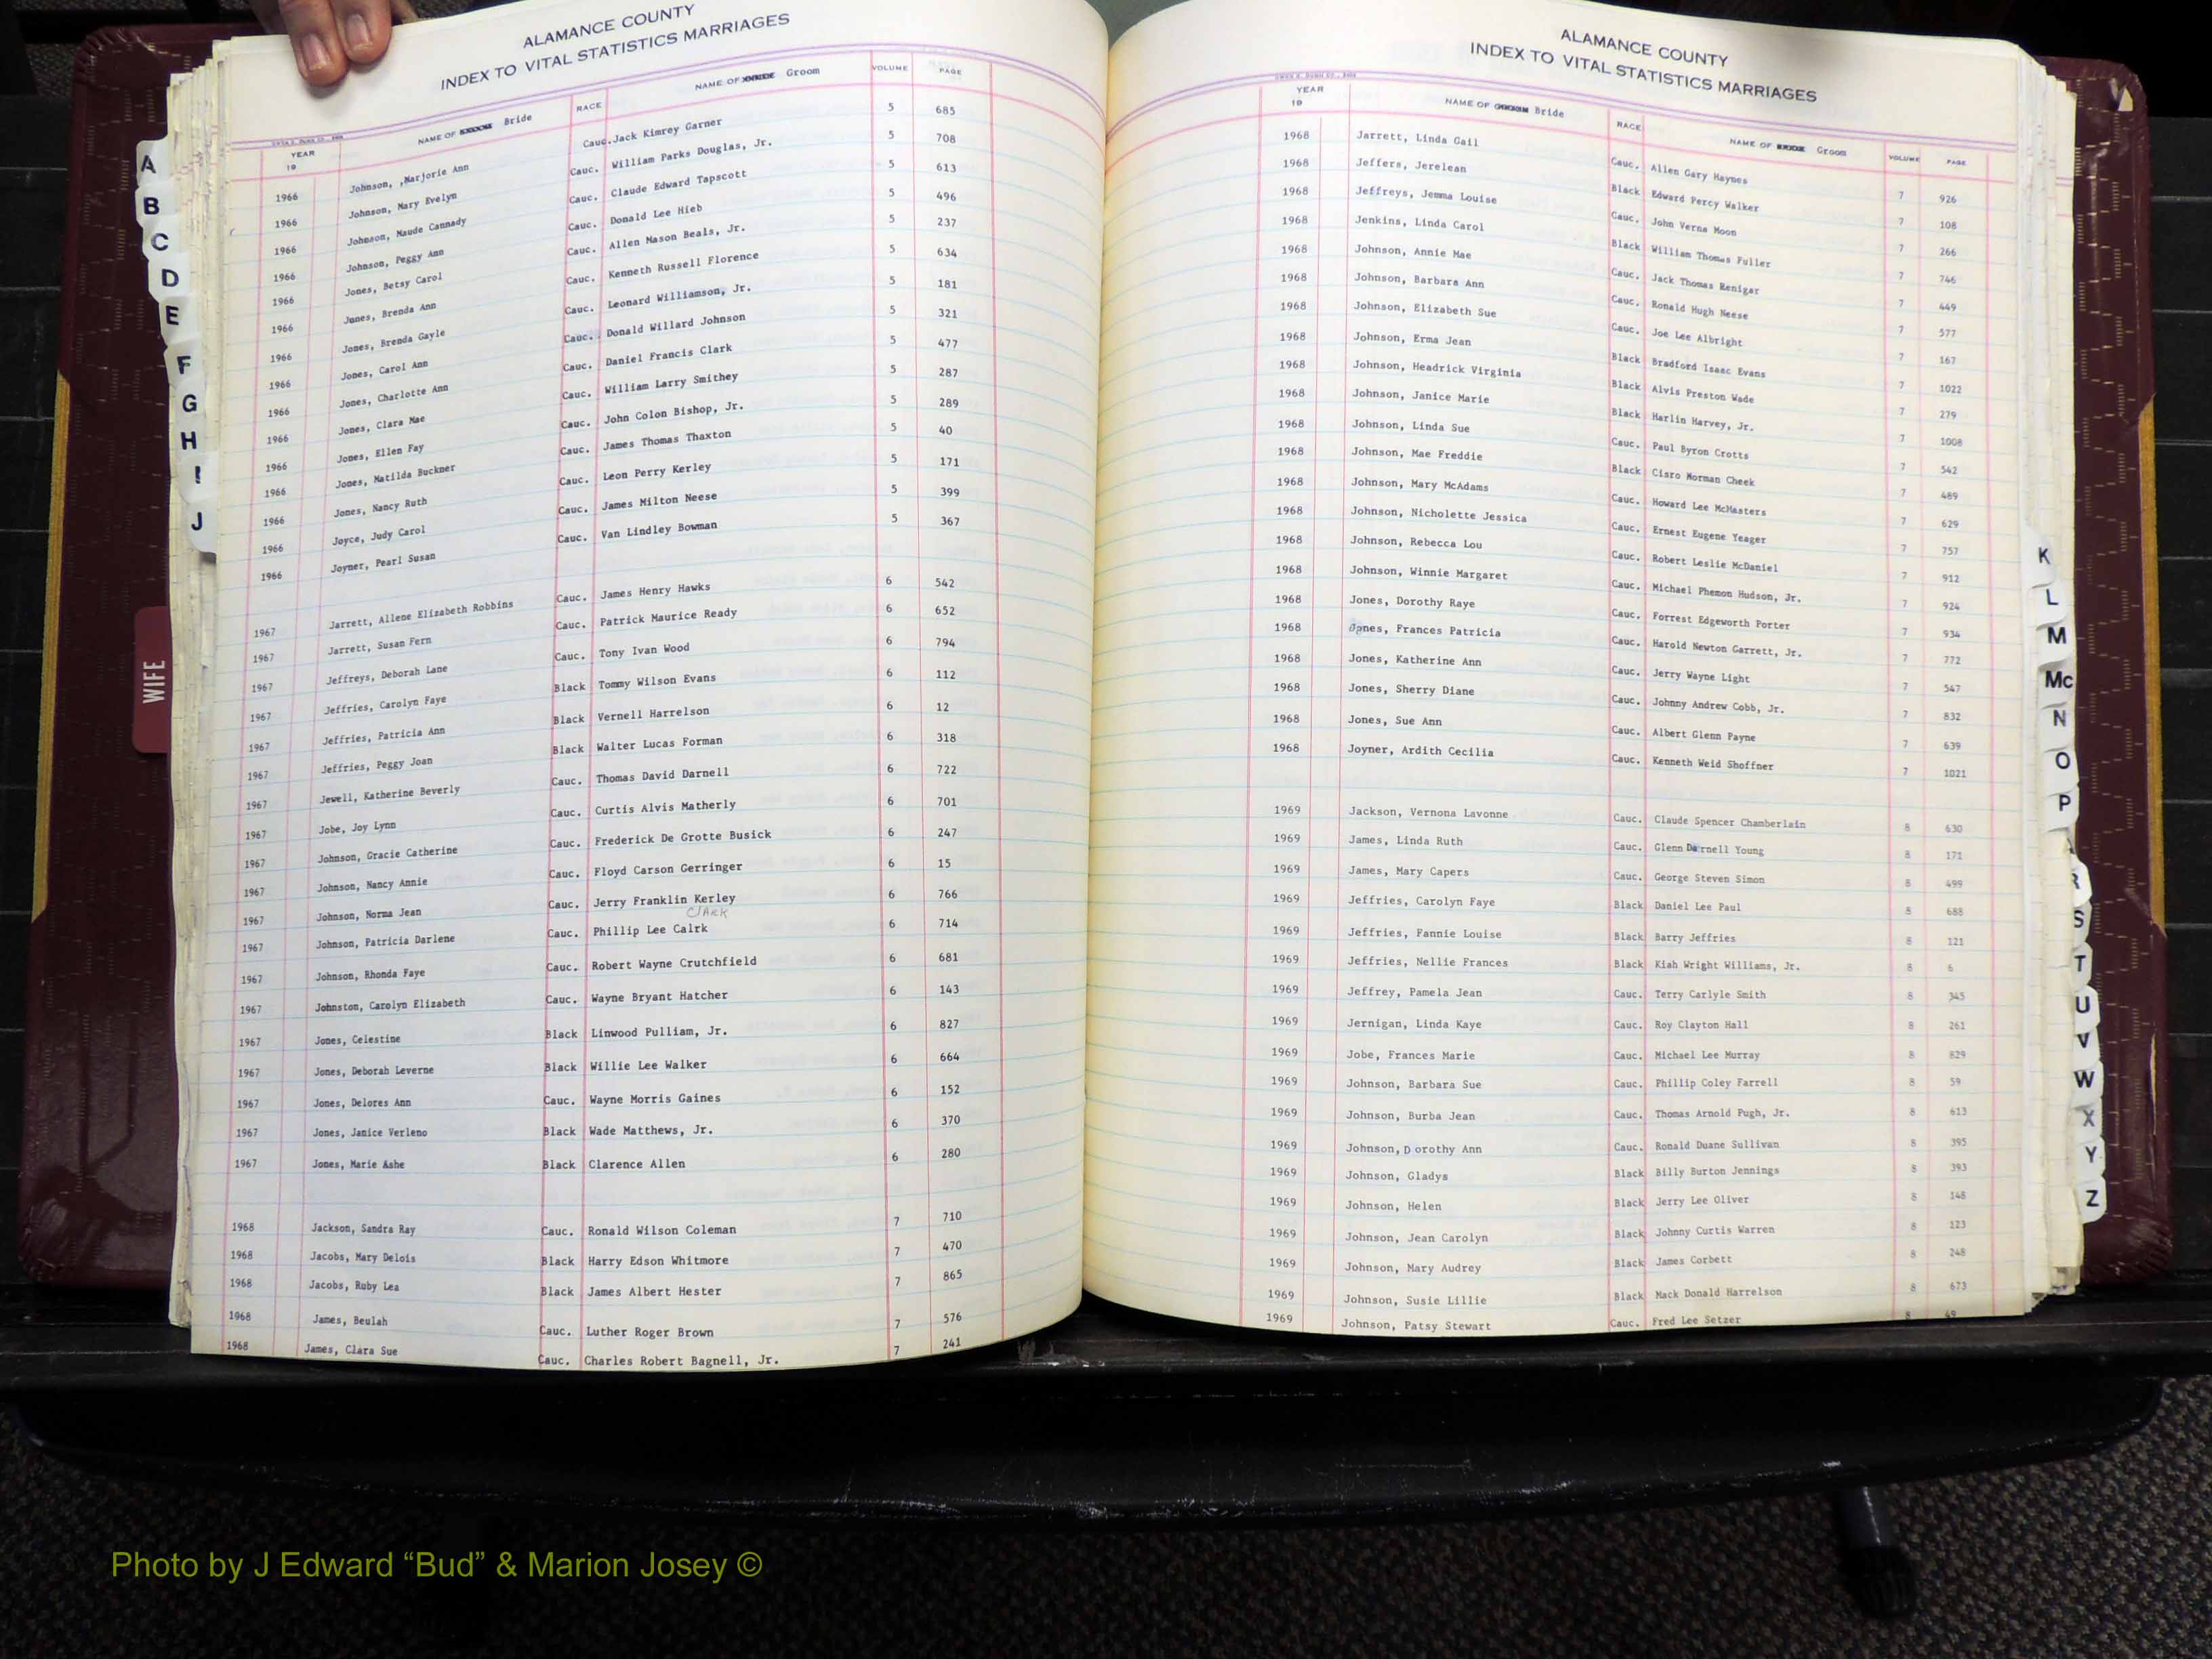 ALAMANCE COUNTY
INDEX TO VITAL STATISTICS MARRIAGES
YEAR 19 NAME OF Bride RACE NAME OF Groom VOLUME PAGE
1966 Johnson, ,Marjorie Ann Cauc. Jack Kimrey Garner 5 685
1966 Johnson, Mary Evelyn Cauc. William Parks Douglas, Jr. 5 708
1966 Johnson, Maude Cannady Cauc. Claude Edward Tapscott 5 613
1966 Johnson, Peggy Ann Cauc. Donald Lee Hieb 5 496
1966 Jones, Betsy Carol Cauc. Allen Mason Beals, Jr. 5 237
1966 Jones, Brenda Ann Cauc. Kenneth Russell Florence 5 634
1966 Jones, Brenda Gayle Cauc. Leonard Williamson, Jr. 5 181
1966 Jones, Carol Ann Cauc. Donald Willard Johnson 5 321
1966 Jones, Charlotte Ann Cauc. Daniel Francis Clark 5 477
1966 Jones, Clara Mae Cauc. William Larry Smithey 5 287
1966 Jones, Ellen Fay Cauc. John Colon Bishop, Jr. 5 289
1966 Jones, Matilda Buckner Cauc. James Thomas Thaxton 5 40
1966 Jones, Nancy Ruth Cauc. Leon Perry Kerley 5 171
1966 Joyce, Judy Carol Cauc. James Milton Neese 5 399
1966 Joyner, Pearl Susan Cauc. Van Lindley Bowman 5 367
1967 Jarrett, Allene Elizabeth Robbins Cauc. James Henry Hawks 6 542
1967 Jarrett, Susan Fern Cauc. Patrick Maurice Ready 6 652
1967 Jeffreys, Deborah Lane Cauc. Tony Ivan Wood 6 794
1967 Jeffries, Carolyn Faye Black Tommy Wilson Evans 6 112
1967 Jeffries, Patricia Ann Black Vernell Harrelson 6 12
1967 Jeffries, Peggy Joan Black Walter Lucas Forman 6 318
1967 Jewell, Katherine Beverly Cauc. Thomas David Darnell 6 722
1967 Jobe, Joy Lynn Cauc. Curtis Alvis Matherly 6 701
1967 Johnson, Gracie Catherine Cauc. Frederick De Grotte Busick 6 247
1967 Johnson, Nancy Annie Cauc. Floyd Carson Gerringer 6 15
1967 Johnson, Norma Jean Cauc. Jerry Franklin Kerley 6 766
CLARK
1967 Johnson, Patricia Darlene Cauc. Phillip Lee Calrk 6 714
1967 Johnson, Rhonda Faye Cauc. Robert Wayne Crutchfield 6 681
1967 Johnston, Carolyn Elizabeth Cauc. Wayne Bryant Hatcher 6 143
1967 Jones, Celestine Black Linwood Pulliam, Jr. 6 827
1967 Jones, Deborah Leverne Black Willie Lee Walker 6 664
1967 Jones, Delores Ann Cauc. Wayne Morris Gaines 6 152
1967 Jones, Janice Verleno Black Wade Matthews, Jr. 6 370
1967 Jones, Marie Ashe Black Clarence Allen 6 280
1968 Jackson, Sandra Ray Cauc. Ronald Wilson Coleman 7 710
1968 Jacobs, Mary Delois Black Harry Edson Whitmore 7 470
1968 Jacobs, Ruby Lea Black James Albert Hester 7 865
1968 James, Beulah Cauc. Luther Roger Brown 7 576
1968 James, Clara Sue Cauc. Charles Robert Bagnell, Jr. 7 241
A
B
C
D
E
F
G
H
I
J
WIFE
ALAMANCE COUNTY
INDEX TO VITAL STATISTICS MARRIAGES
YEAR 19 NAME OF Bride RACE NAME OF Groom VOLUME PAGE
1968 Jarrett, Linda Gail Cauc. Allen Gary Haynes 7 926
1968 Jeffers, Jerelean Black Edward Percy Walker 7 108
1968 Jeffreys, Jemma Louise Cauc. John Verna Moon 7 266
1968 Jenkins, Linda Carol Black William Thomas Fuller 7 746
1968 Johnson, Annie Mae Cauc. Jack Thomas Renigar 7 449
1968 Johnson, Barbara Ann Cauc. Ronald Hugh Neese 7 577
1968 Johnson, Elizabeth Sue Cauc. Joe Lee Albright 7 167
1968 Johnson, Erma Jean Black Bradford Isaac Evans 7 1022
1968 Johnson, Headrick Virginia Black Alvis Preston Wade 7 279
1968 Johnson, Janice Marie Black Harlin Harvey, Jr. 7 1008
1968 Johnson, Linda Sue Cauc. Paul Byron Crotts 7 542
1968 Johnson, Mae Freddie Black Cisro Morman Cheek 7 489
1968 Johnson, Mary McAdams Cauc. Howard Lee McMasters 7 629
1968 Johnson, Nicholette Jessica Cauc. Ernest Eugene Yeager 7 757
1968 Johnson, Rebecca Lou Cauc. Robert Leslie McDaniel 7 912
1968 Johnson, Winnie Margaret Cauc. Michael Phemon Hudson, Jr. 7 924
1968 Jones, Dorothy Raye Cauc. Forrest Edgeworth Porter 7 934
1968 Jones, Frances Patricia Cauc. Harold Newton Garrett, Jr. 7 772
1968 Jones, Katherine Ann Cauc. Jerry Wayne Light 7 547
1968 Jones, Sherry Diane Cauc. Johnny Andrew Cobb, Jr. 7 832
1968 Jones, Sue Ann Cauc. Albert Glenn Payne 7 639
1968 Joyner, Ardith Cecilia Cauc. Kenneth Weid Shoffner 7 1021
1969 Jackson, Vernona Lavonne Cauc. Claude Spencer Chamberlain 8 630
1969 James, Linda Ruth Cauc. Glenn Darnell Young 8 171
1969 James, Mary Capers Cauc. George Steven Simon 8 499
1969 Jeffries, Carolyn Faye Black Daniel Lee Paul 8 688
1969 Jeffries, Fannie Louise Black Barry Jeffries 8 121
1969 Jeffries, Nellie Frances Black Kiah Wright Williams, Jr. 8 6
1969 Jeffrey, Pamela Jean Cauc. Terry Carlyle Smith 8 345
1969 Jernigan, Linda Kaye Cauc. Roy Clayton Hall 8 261
1969 Jobe, Frances Marie Cauc. Michael Lee Murray 8 829
1969 Johnson, Barbara Sue Cauc. Phillip Coley Farrell 8 59
1969 Johnson, Burba Jean Cauc. Thomas Arnold Pugh, Jr. 8 613
1969 Johnson, Dorothy Ann Cauc. Ronald Duane Sullivan 8 395
1969 Johnson, Gladys Black Billy Burton Jennings 8 393
1969 Johnson, Helen Black Jerry Lee Oliver 8 148
1969 Johnson, Jean Carolyn Black Johnny Curtis Warren 8 123
1969 Johnson, Mary Audrey Black James Corbett 8 248
1969 Johnson, Susie Lillie Black Mack Donald Harrelson 8 673
1969 Johnson, Patsy Stewart Cauc. Fred Lee Setzer 8 49
K
L
M
Mc
N
O
P
R
S
T
U
V
W
X
Y
Z
Photo by J Edward “Bud” & Marion Josey ©